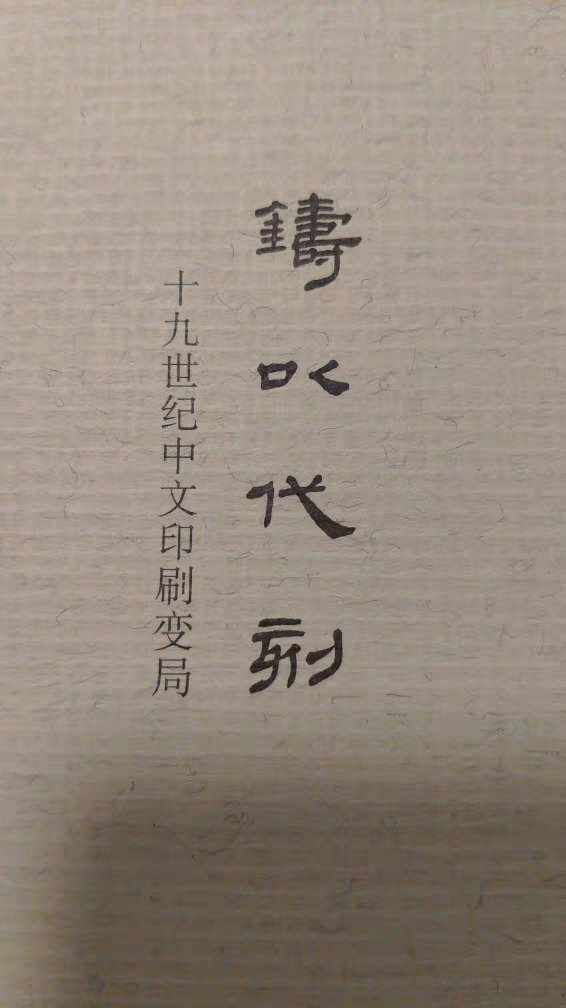 鑄以代刻
十九世纪中文印刷变局